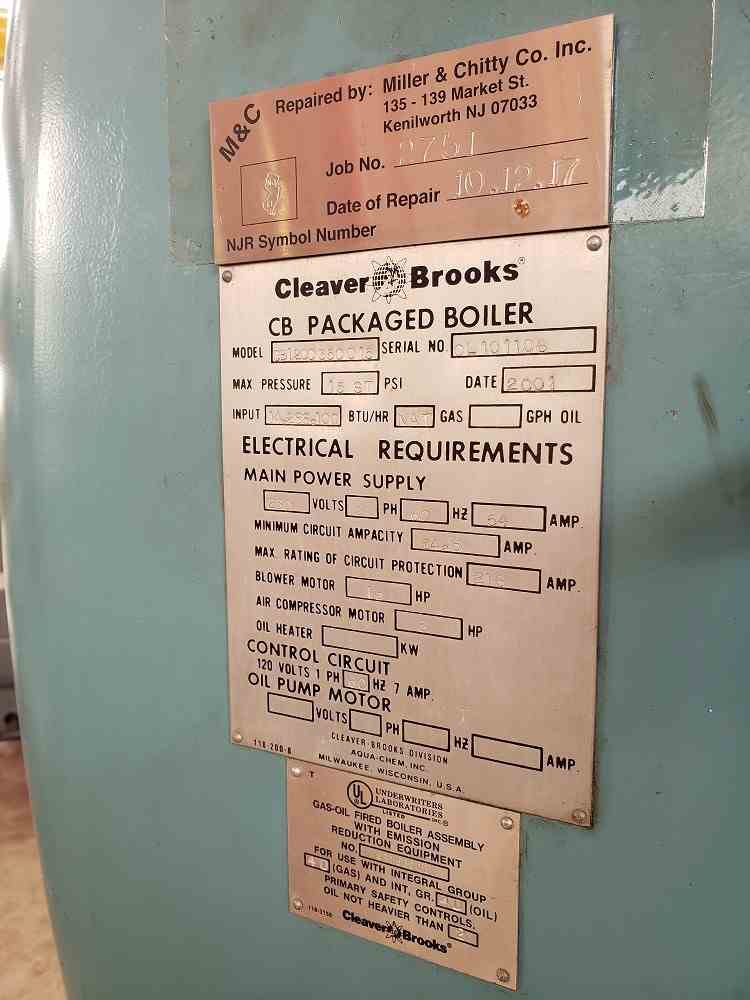 M&C
Repaired by: Miller & Chitty Co. Inc.
135 - 139 Market St.
Kenilworth NJ 07033
Job No. 2751
Date of Repair 10.12.17
NJR Symbol Number
Cleaver Brooks®
CB PACKAGED BOILER
MODEL SERIAL NO. OL101108
MAX PRESSURE 15 ST PSI DATE 2001
INPUT BTU/HR NAT GAS GPH OIL
ELECTRICAL REQUIREMENTS
MAIN POWER SUPPLY
VOLTS PH HZ 54 AMP.
MINIMUM CIRCUIT AMPACITY AMP.
MAX. RATING OF CIRCUIT PROTECTION AMP.
BLOWER MOTOR HP
AIR COMPRESSOR MOTOR HP
OIL HEATER KW
CONTROL CIRCUIT
120 VOLTS 1 PH 60 HZ 7 AMP.
OIL PUMP MOTOR
VOLTS PH HZ AMP.
CLEAVER-BROOKS DIVISION
118-200-B AQUA-CHEM, INC.
MILWAUKEE, WISCONSIN, U.S.A.
T
UL UNDERWRITERS
LABORATORIES
LISTED INC.®
GAS-OIL FIRED BOILER ASSEMBLY
WITH EMISSION
REDUCTION EQUIPMENT
NO.
FOR USE WITH INTEGRAL GROUP
(GAS) AND INT. GR. (OIL)
PRIMARY SAFETY CONTROLS.
OIL NOT HEAVIER THAN 2
Cleaver Brooks®